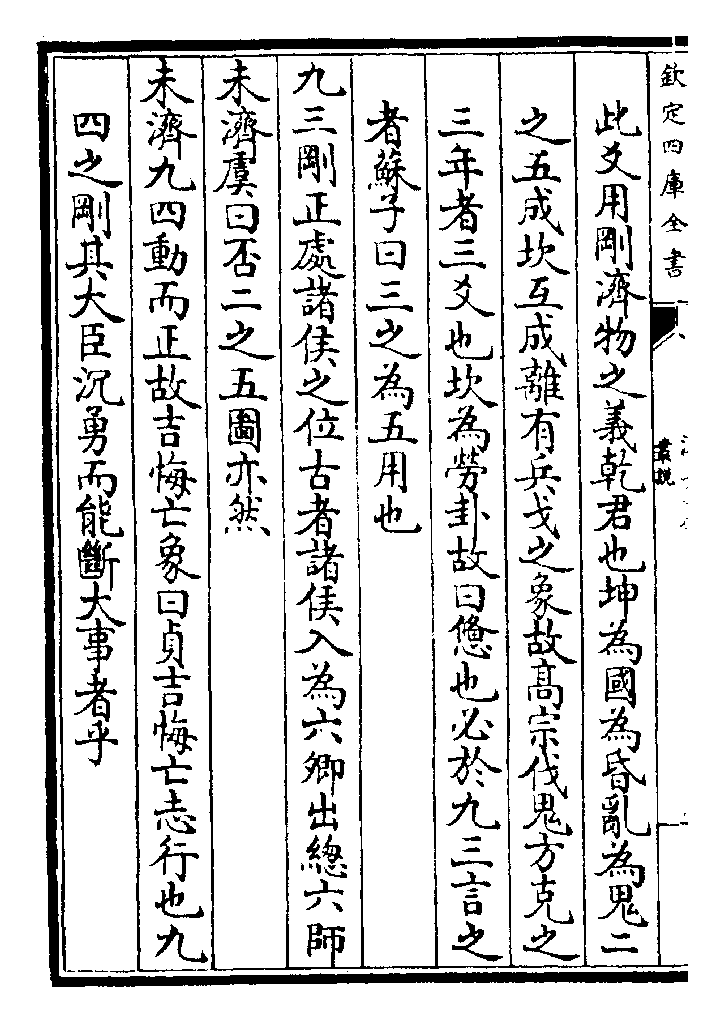 欽定四庫全書
叢說
此爻用剛濟物之義乾君也坤為國為昏亂為鬼二
之五成坎互成離有兵戈之象故高宗伐鬼方克之
三年者三爻也坎為勞卦故曰憊也必於九三言之
者蘇子曰三之為五用也
九三剛正處諸侯之位古者諸侯入為六卿出總六師
未濟虞曰否二之五圖亦然
未濟九四動而正故吉悔亡象曰貞吉悔亡志行也九
四之剛其大臣沉勇而能斷大事者乎